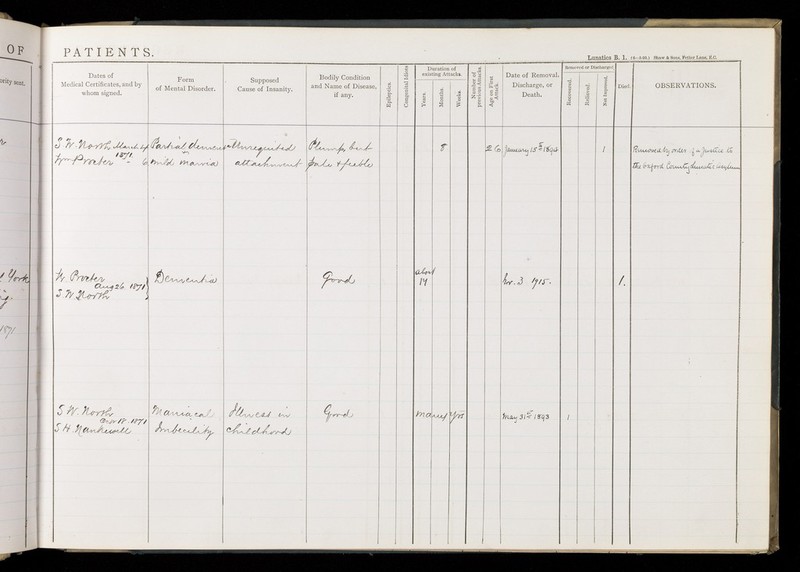 OF
PATIENTS.
Lunatics B. 1. Shaw & Sons, Fetter Lane, E.C.
Dates of
Medical Certificates, and by
whom signed.
Form
of Mental Disorder.
Supposed
Cause of Insanity.
Bodily Condition
and Name of Disease,
if any.
Epileptics.
Congenital Idiots
Duration of
existing Attacks.
Years
Months.
Weeks
Number of
previous Attacks.
Age on First
Attack.
Date of Removal,
Discharge, or
Death.
Removed or Discharged
Recovered.
Relieved.
Not Improved.
Died.
OBSERVATIONS.
S. W. North March 4
1871
Wm Procter " 6
Partial dementia
mild mania
Unrequited
attachment
Plump but
pale & feeble
8
26
January 15th
1
Removed by order of a Justice to
the County Lunatic Asylum
York
W. Procter
Aug 26 1871
S. W. North
Dementia
Good
about
14
Nov. 3 1915.
1.
1871
S. W. North
1871
Maniacal
Imbecility
Illness in
childhood
Good
many yrs
May 31st 1893
1